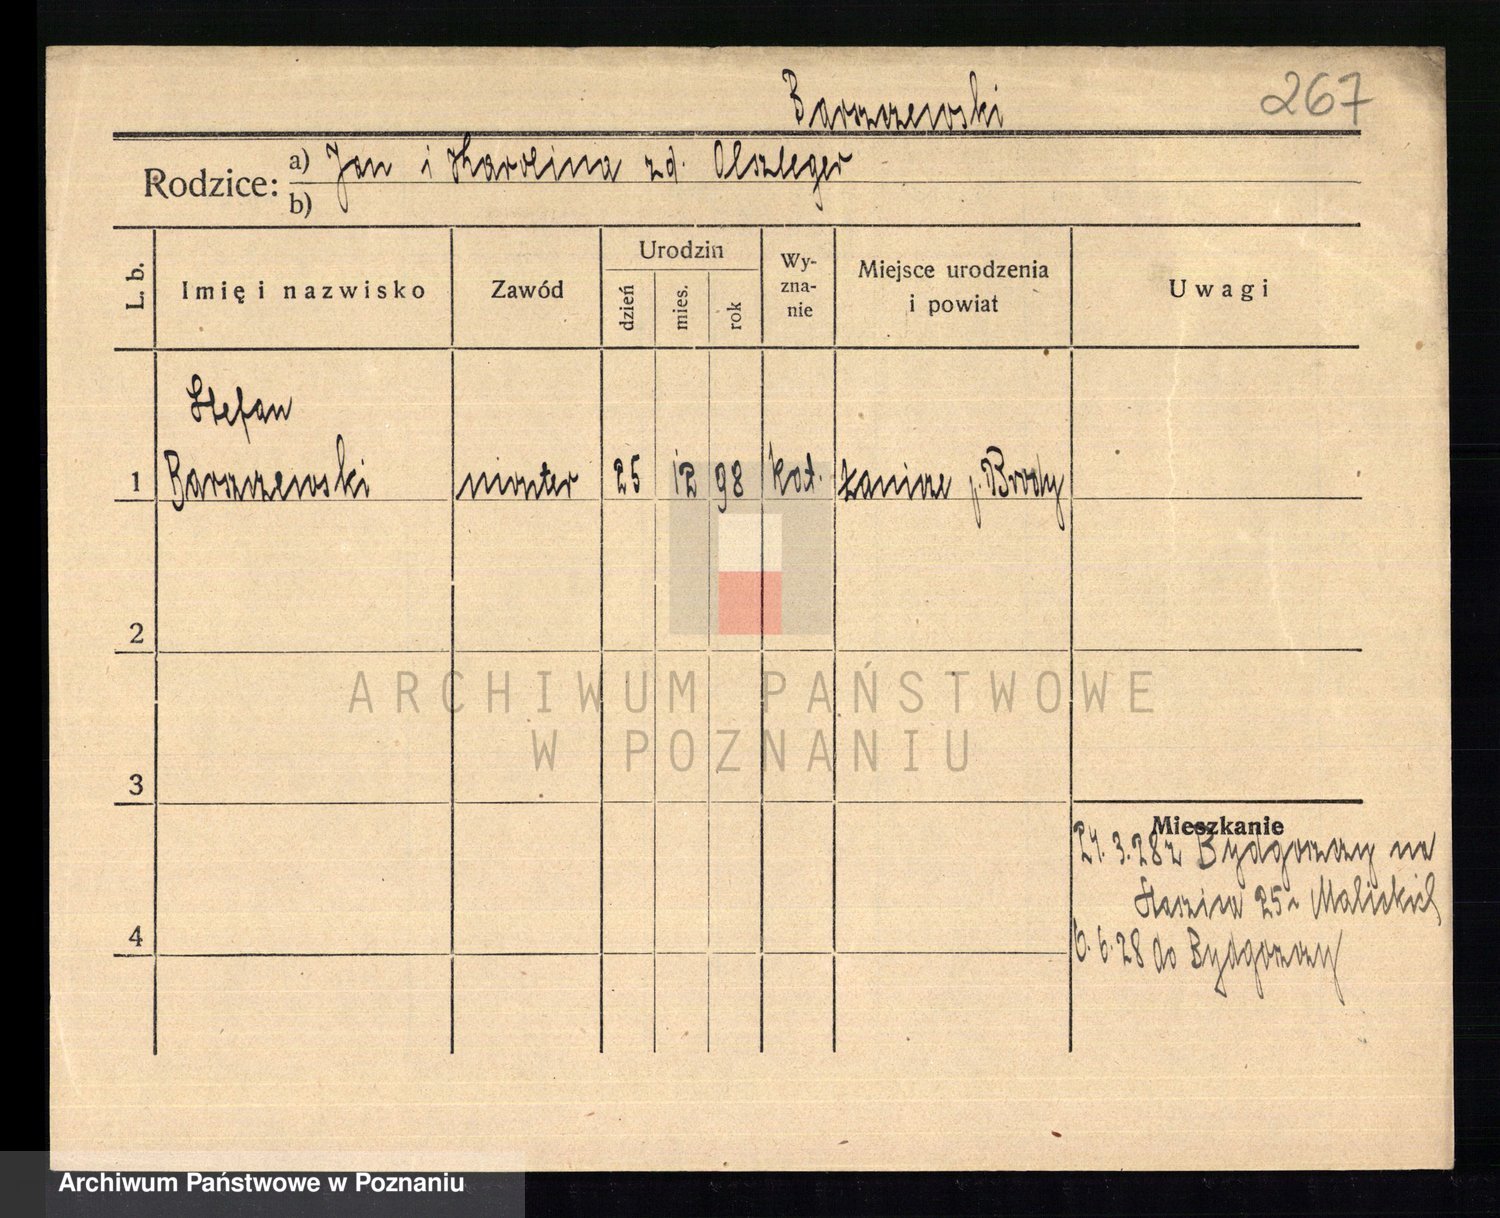 Barszczewski
267
Rodzice: a) Jan i Karolina zd. Olszleger
b)
L. b.
Imię i nazwisko
Zawód
Urodzin
dzień
mies.
rok
Wy-
zna-
nie
Miejsce urodzenia
i powiat
Uwagi
Stefan
1 Barszczewski monter 25 12 98 kat. p. Brody
2
3
4
Mieszkanie
3.28 z Bydgoszczy na
Staszica 25 Malickich
6.6.28 do Bydgoszczy
ARCHIWUM PAŃSTWOWE
W POZNANIU
Archiwum Państwowe w Poznaniu